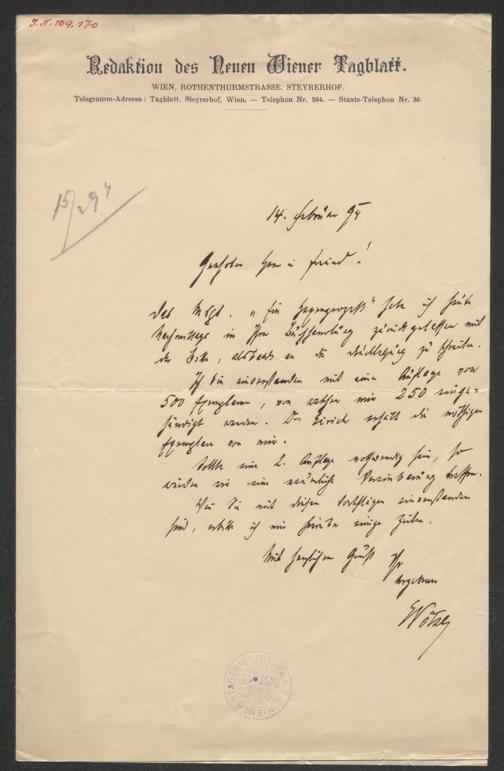 J.N. 109.170
Redaktion des Neuen Wiener Tagblatt.
WIEN, ROTHENTHURMSTRASSE, STEYRERHOF.
Telegramm-Adresse: Tagblatt, Steyrerhof, Wien. — Telephon Nr. 384. — Staats-Telephon Nr. 36.
14. Februar 94
Geehrter Herr u Freund!
Das Mspt. „Ein Hexenprozeß" habe ich heute
Nachmittags in Ihrer Buchhandlung zurückgelassen mit
der Bitte, alsbald an die Drucklegung zu schreiten.
Ich bin einverstanden mit einer Auflage von
500 Exemplaren, von welchen mir 250 einge-
händigt werden. Dr. Eirich erhält die nöthigen
Exemplare von mir.
Sollte eine 2. Auflage nothwendig sein, so
würden wir eine neuerliche Vereinbarung treffen.
Wenn Sie mit diesen Vorschlägen einverstanden
sind, erbitte ich mir hierüber einige Zeilen.
Mit herzlichem Gruß Ihr
ergebener